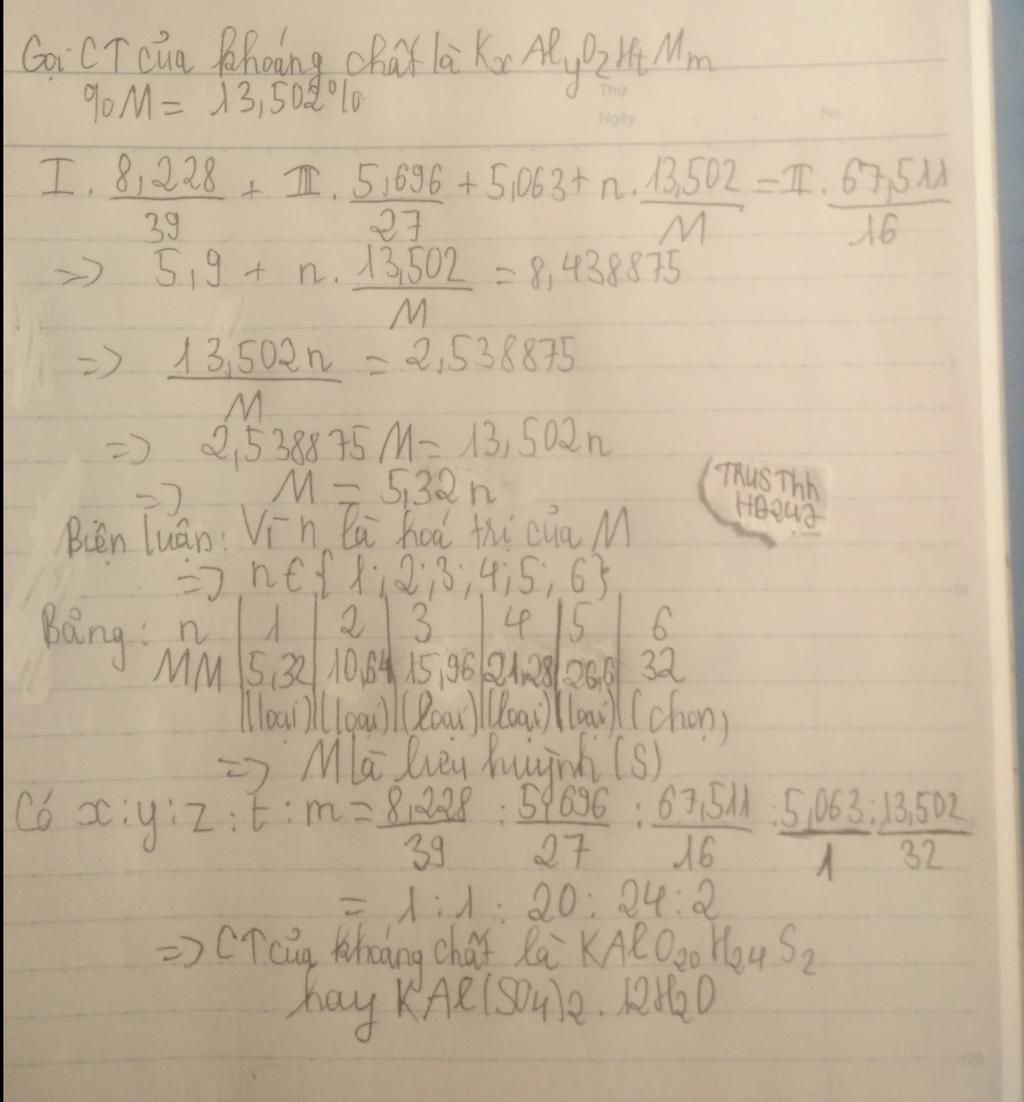 Gọi CT của khoáng chất là KxAlyOzHtMm
Thứ
%M = 13,502%
Ngày
No.
I. 8,228/39 + III. 5,696/27 + 5,063 + n. 13,502/M = II. 67,511/16
=> 5,9 + n. 13,502/M = 8,438875
=> 13,502n/M = 2,538875
=> 2,538875M = 13,502n
=> M = 5,32n
TRUSThh
HĐ247
Biện luận: Vì n là hoá trị của M
=> n∈{1;2;3;4;5;6}
Bảng: n | 1 | 2 | 3 | 4 | 5 | 6
MM | 5,32 | 10,64 | 15,96 | 21,28 | 26,6 | 32
(loại) | (loại) | (loại) | (loại) | (loại) | (chọn)
=> M là lưu huỳnh (S)
Có x:y:z:t:m = 8,228/39 : 5,696/27 : 67,511/16 : 5,063/1 : 13,502/32
= 1:1:20:24:2
=> CT của khoáng chất là KAlO20H24S2
hay KAl(SO4)2.12H2O